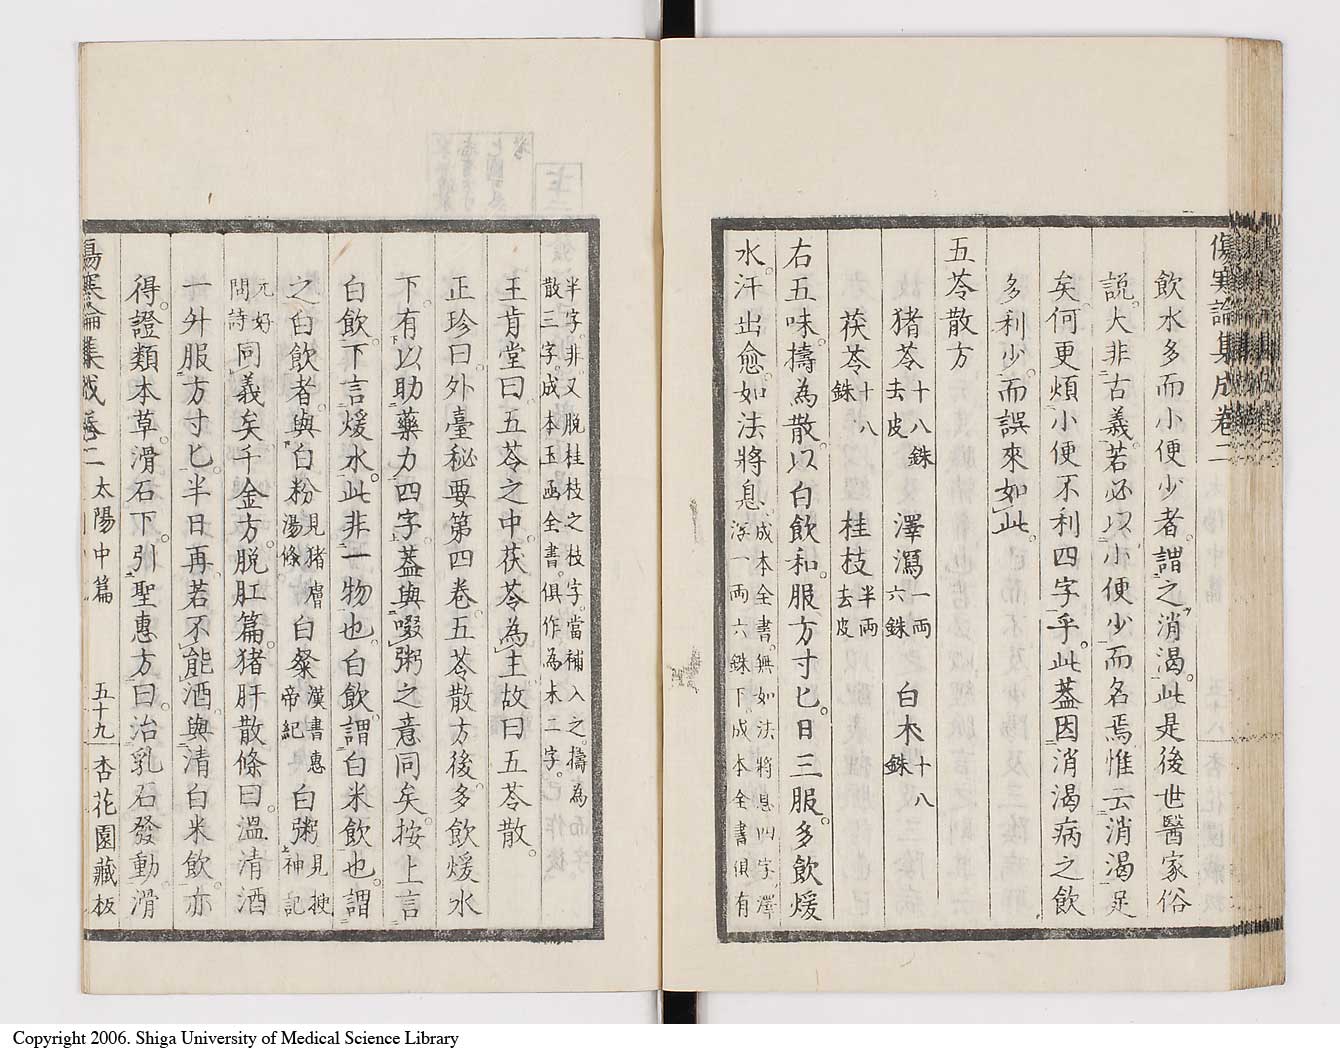 傷寒論集成卷二
飲水多而小便少者。謂之消渴。此是後世醫家俗
說。大非古義。若必以小便少而名焉。惟云消渴足
矣。何更煩小便不利四字乎。此葢因消渴病之飲
多利少。而誤來如此。
五苓散方
猪苓十八銖去皮 澤瀉一兩六銖 白朮十八銖
茯苓十八銖 桂枝半兩去皮
右五味。擣為散。以白飲和。服方寸匕。日三服。多飲煖
水。汗出愈。如法將息。成本全書。無如法將息四字。澤瀉一兩六銖下。成本全書。俱有
半字。非。又脫桂枝之枝字。當補入之。擣為散三字。成本玉函全書。俱作為末二字。
王肯堂曰。五苓之中。茯苓為主。故曰五苓散。
正珍曰。外臺秘要第四卷。五苓散方後。多飲煖水
下。有以助藥力四字。葢與啜粥之意同矣。按上言
白飲。下言煖水。此非一物也。白飲。謂白米飲也。謂
之白飲者。與白粉見猪膚湯條白粲漢書惠帝紀白粥見搜神記
元好問詩同義矣。千金方。脫肛篇。猪肝散條曰。溫清酒
一升服方寸匕。半日再。若不能酒。與清白米飲。亦
得。證類本草。滑石下。引聖惠方曰。治乳石發動。滑
傷寒論集成卷二 太陽中篇 五十九 杏花園藏板